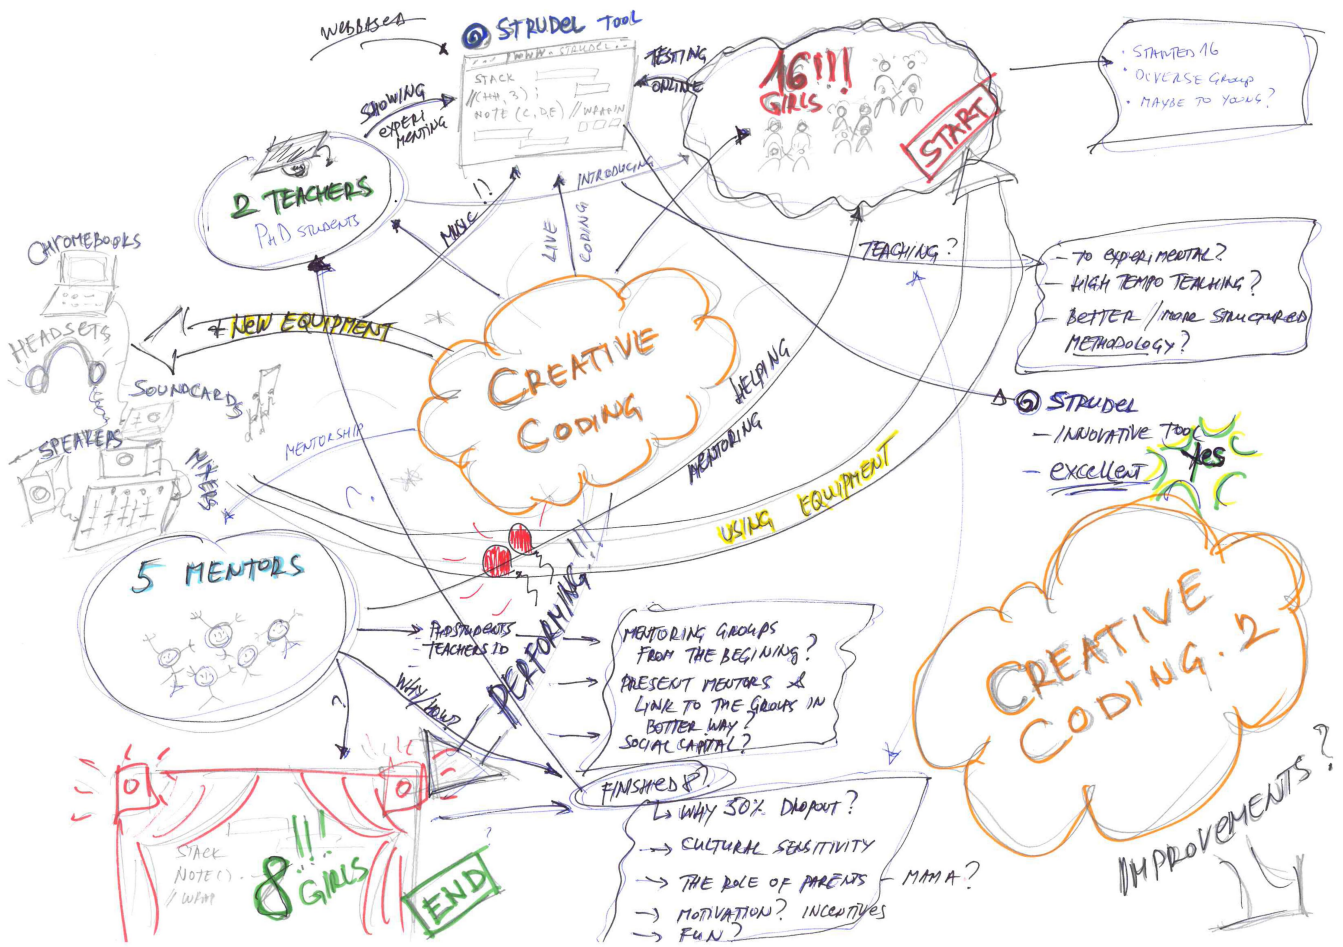 WEBBASED
STRUDEL TOOL
WWW.STRUDEL...
STACK
//(HH, 3);
NOTE (C,D,E) //WRAPIN
SHOWING
EXPERI
MENTING
TESTING
ONLINE
16!!!
GIRLS
START
· STARTED 16
· DIVERSE GROUP
· MAYBE TO YOUNG?
2 TEACHERS
PHD STUDENTS
INTRODUCING
MUSIC!!
LIVE
CODING
TEACHING?
- TO EXPERIMENTAL?
- HIGH TEMPO TEACHING?
- BETTER / MORE STRUCTURED
METHODOLOGY?
CHROMEBOOKS
HEADSETS
SOUNDCARDS
SPEAKERS
MIXERS
* NEW EQUIPMENT
CREATIVE
CODING
HELPING
MENTORING
MENTORSHIP
USING EQUIPMENT
STRUDEL
- INNOVATIVE TOOL
- EXCELLENT
Yes
5 MENTORS
- PHDSTUDENTS
- TEACHERS ID
-
WHY/HOW?
?
PERFORMING!!!
MENTORING GROUPS
FROM THE BEGINING?
PRESENT MENTORS &
LINK TO THE GROUPS IN
BETTER WAY?
SOCIAL CAPITAL?
FINISHED 8?
WHY 50% DROPOUT?
CULTURAL SENSITIVITY
THE ROLE OF PARENTS - MAMA?
MOTIVATION? INCENTIVES
FUN?
STACK
NOTE() · -
// WRAP
8 GIRLS!!!
END
CREATIVE
CODING. 2
IMPROVEMENTS?